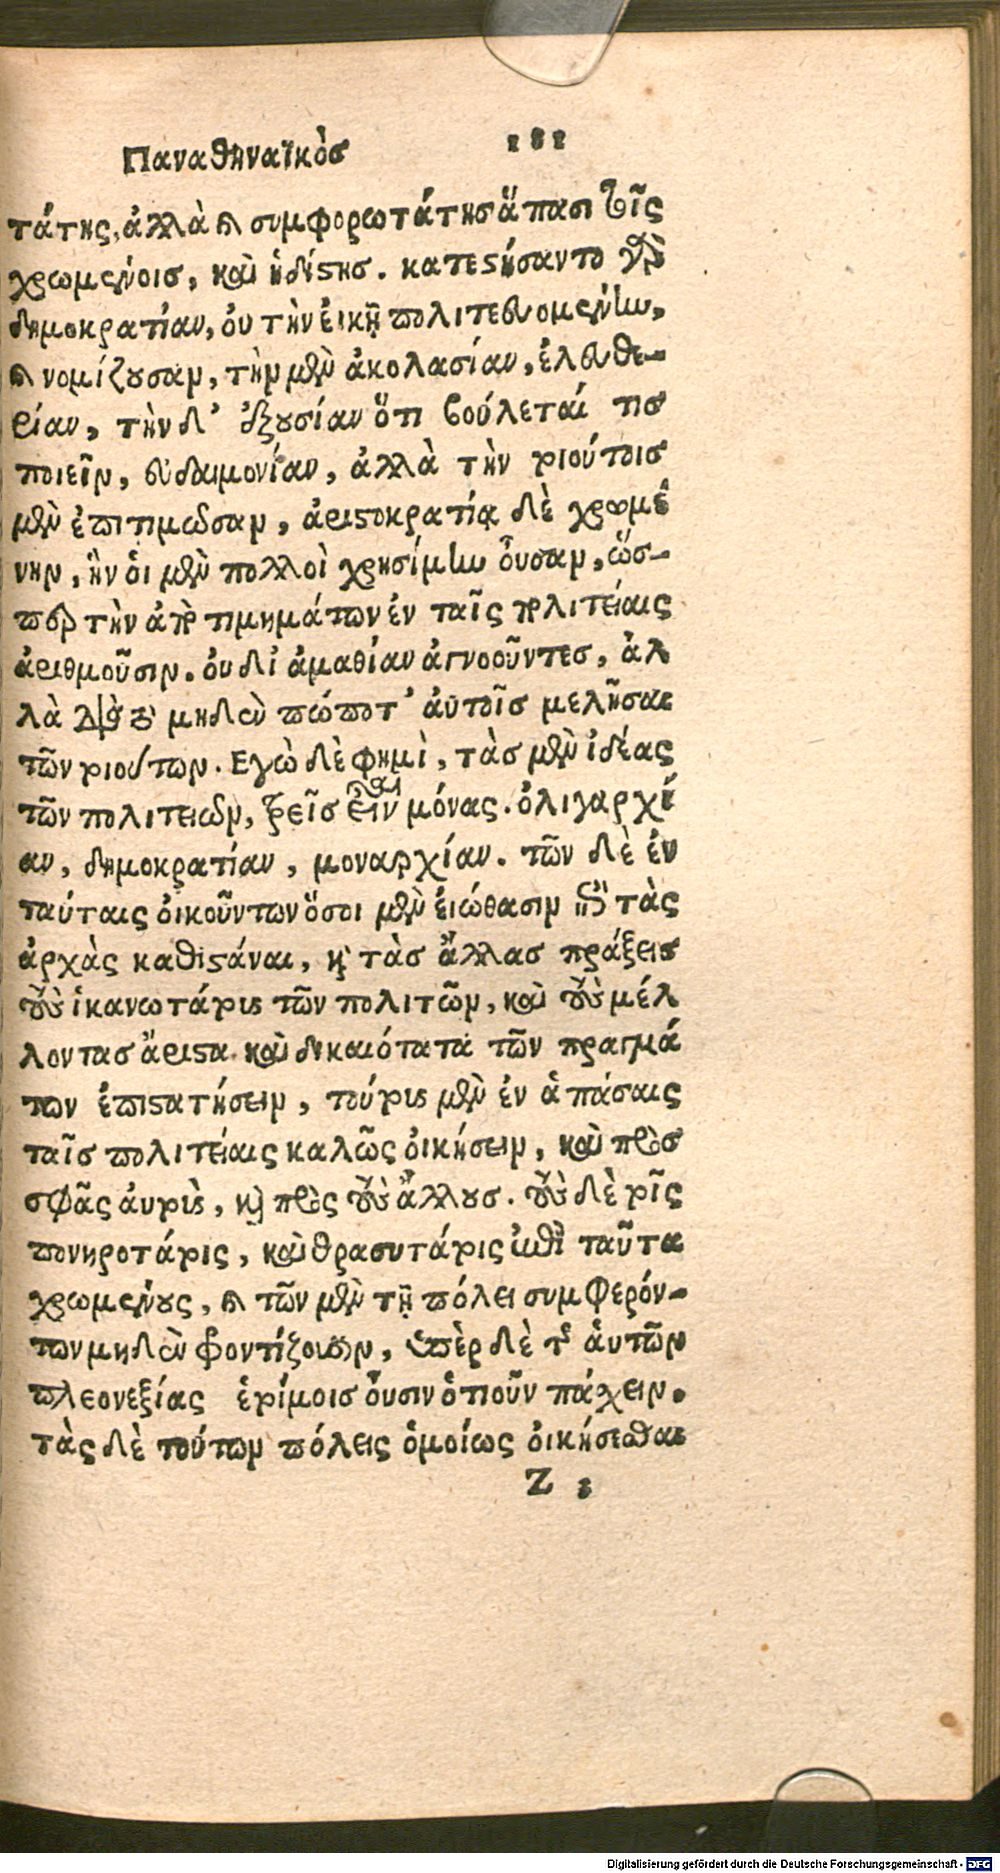 Παναθηναϊκὸσ 181
τάτης, ἀλλὰ καὶ συμφορωτάτησ ἅπασι τοῖς
χρωμένοισ, καὶ ἡδίστησ. κατεστήσαντο γὰρ
δημοκρατίαν, οὐ τὴν εἰκῇ πολιτευομένην,
καὶ νομίζουσαν, τὴν μὲν ἀκολασίαν, ἐλευθε-
ρίαν, τὴν δ' ἐξουσίαν ὅτι βούλεταί τισ
ποιεῖν, εὐδαιμονίαν, ἀλλὰ τὴν τοιούτοισ
μὲν ἐπιτιμῶσαν, ἀριστοκρατίᾳ δὲ χρωμέ
νην, ἣν ὁι μὲν πολλοὶ χρησίμην οὖσαν, ὥσ-
περ τὴν ἀπὸ τιμημάτων ἐν ταῖς πολιτείαις
ἀριθμοῦσιν. οὐ δι' ἀμαθίαν ἀγνοοῦντεσ, ἀλ
λὰ διὰ τὸ μηδὲν πώποτ' αὐτοῖσ μελῆσαι
τῶν τοιούτων. Εγὼ δὲ φημὶ, τὰσ μὲν ἰδέας
τῶν πολιτειῶν, τρεῖσ εἶναι μόνας. ὀλιγαρχί
αν, δημοκρατίαν, μοναρχίαν. τῶν δὲ ἐν
ταύταις οἰκούντων ὅσοι μὲν εἰώθασιν ἐπὶ τὰς
ἀρχὰς καθιστάναι, καὶ τὰσ ἄλλασ πράξεισ
τοὺς ἱκανωτάτους τῶν πολιτῶν, καὶ τοὺς μέλ
λοντασ ἄριστα καὶ δικαιότατα τῶν πραγμά
των ἐπιστατήσειν, τούτους μὲν ἐν ἁπάσαις
ταῖσ πολιτείαις καλῶς οἰκήσειν, καὶ πρὸσ
σφᾶς αὐτοὺς, καὶ πρὸς τοὺς ἄλλουσ. τοὺς δὲ τοῖς
πονηροτάτοις, καὶ θρασυτάτοις ἐπὶ ταῦτα
χρωμένους, καὶ τῶν μὲν τῇ πόλει συμφερόν-
των μηδὲν φροντίζουσιν, ὑπὲρ δὲ τῆς ἁυτῶν
πλεονεξίας ἑτοίμοισ οὖσιν ὁτιοῦν πάσχειν.
τὰς δὲ τούτων πόλεις ὁμοίως οἰκήσεσθαι
Z 3
Digitalisierung gefördert durch die Deutsche Forschungsgemeinschaft - DFG